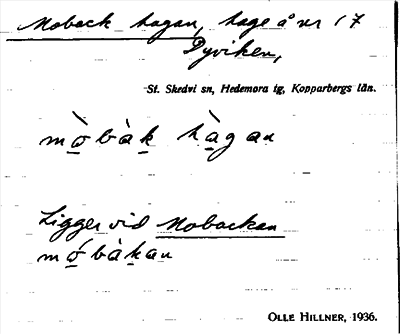 Moback hagan, hage å nr 17
Dyviken,
St. Skedvi sn, Hedemora tg, Kopparbergs län.
mò̱bàḵ hà̱gan
Ligger vid Mobackan
mó̱bàḵan
OLLE HILLNER, 1936.